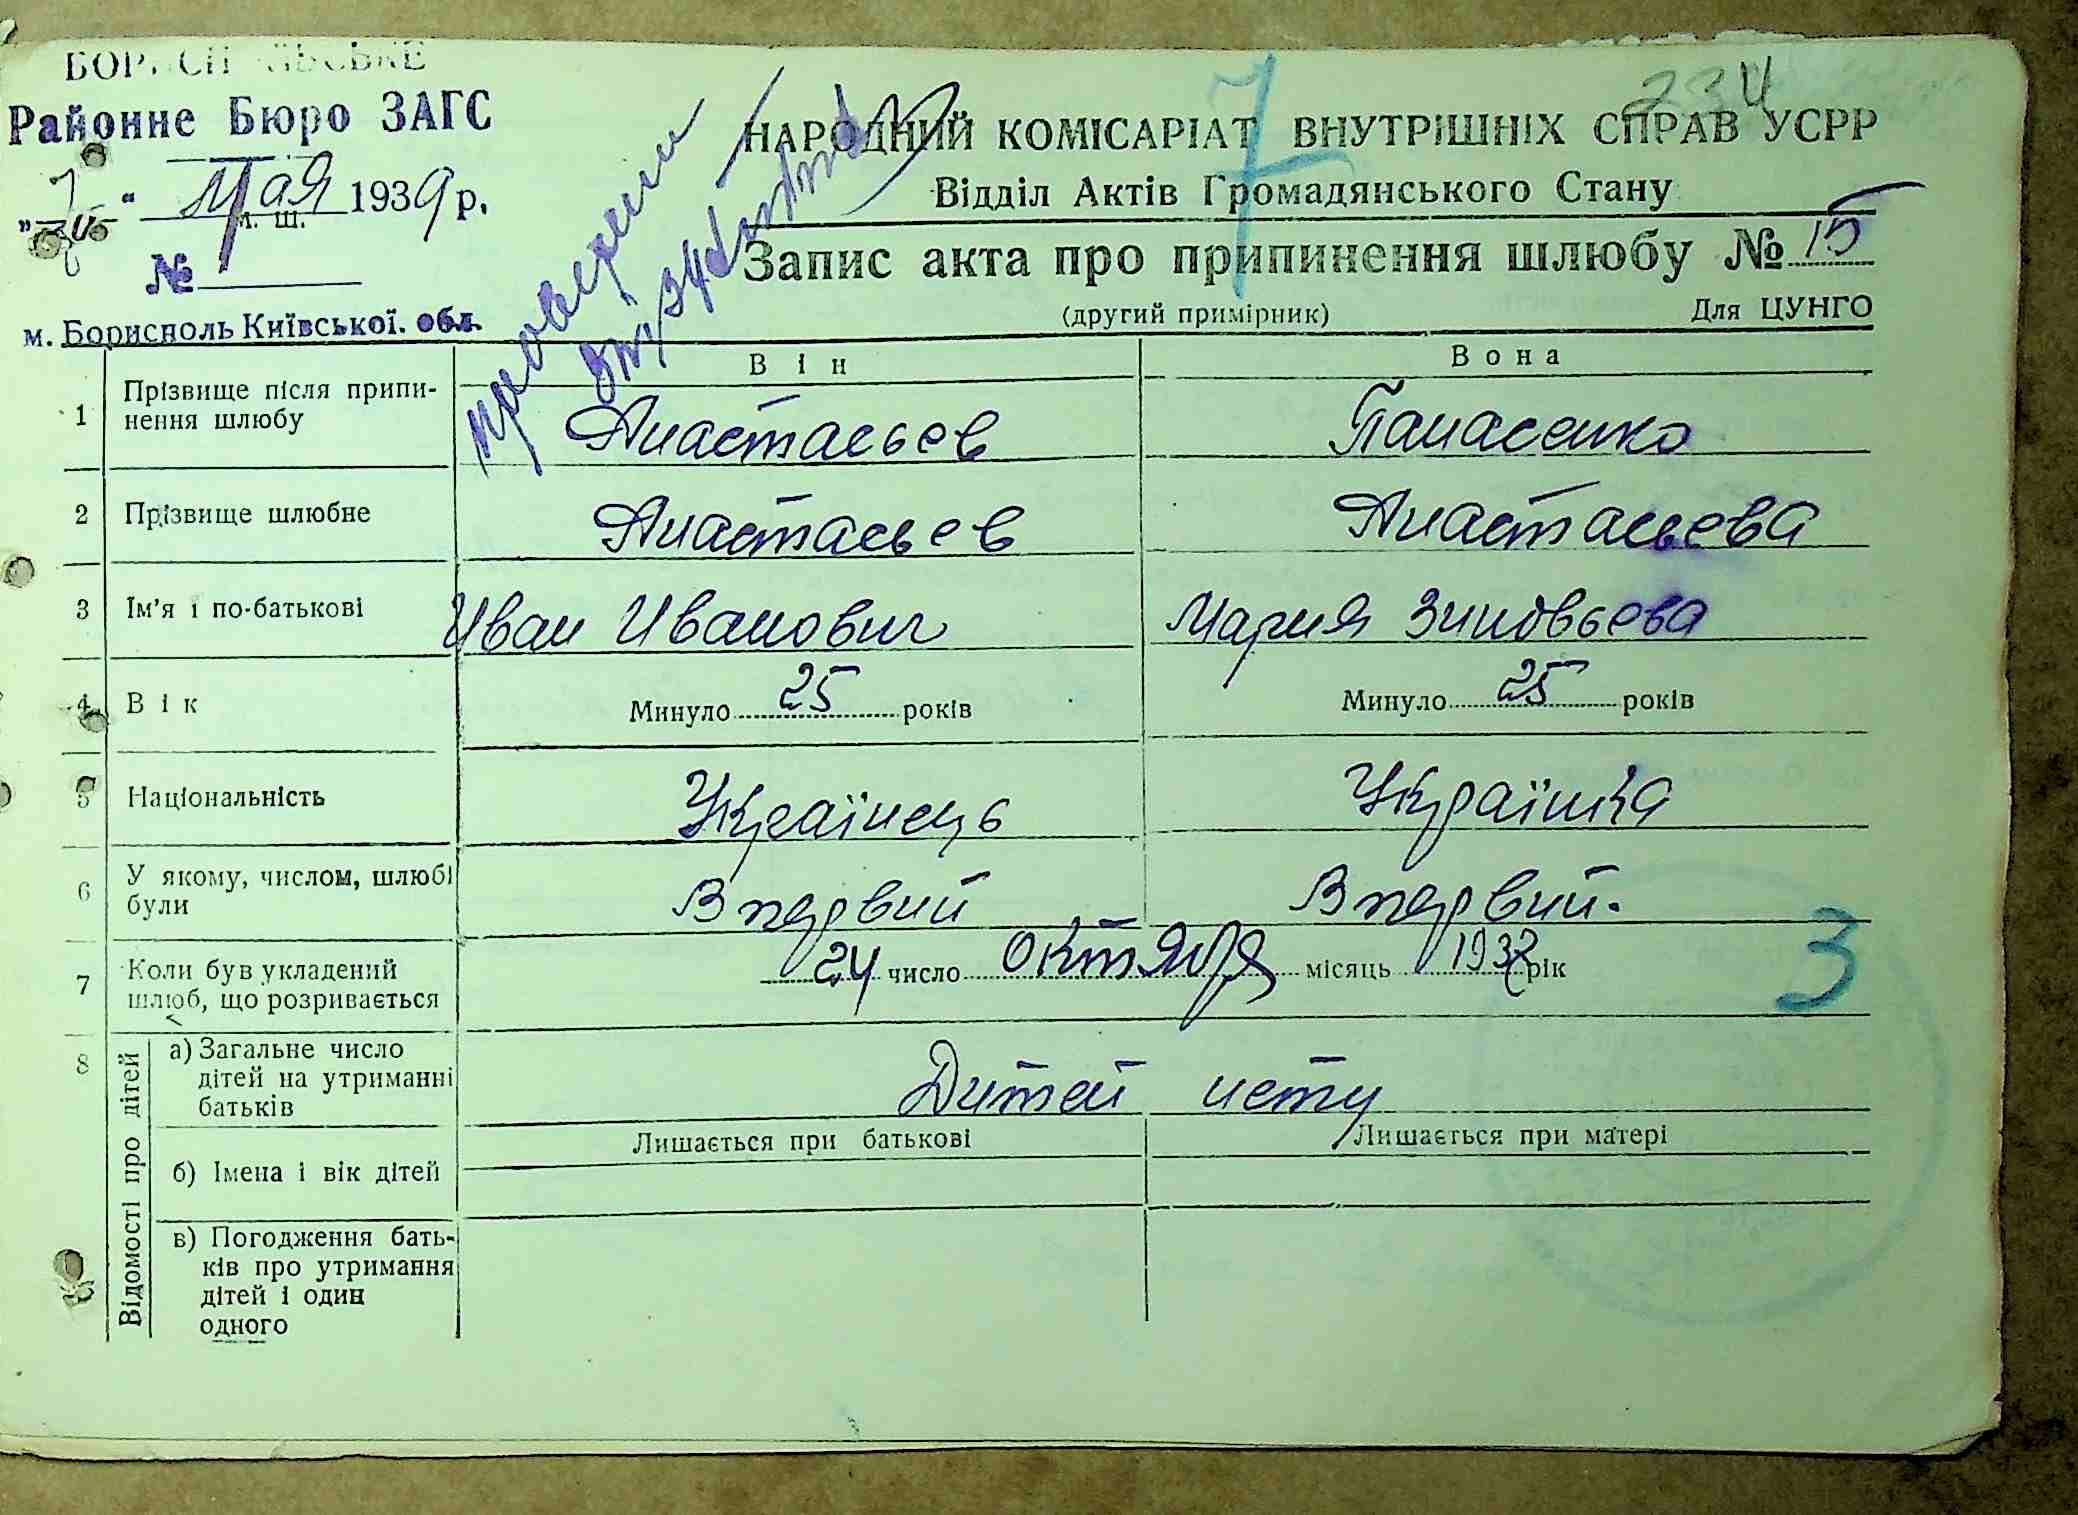 Районне Бюро ЗАГС
мая 1939 р.
м. ш.
№
м. Бориспoль Київської. обл.
7
234
НАРОДНИЙ КОМІСАРІАТ ВНУТРІШНІХ СПРАВ УСРР
Відділ Актів Громадянського Стану
Запис акта про припинення шлюбу № 15
(другий примірник) Для ЦУНГО
Він Вона
1 Прізвище після припи-
нення шлюбу Анастасьев Панасенко
2 Прізвище шлюбне Анастасьев Анастасьева
3 Ім'я і по-батькові Иван Иванович Мария Зиновьева
4 Вік Минуло 25 років Минуло 25 років
5 Національність Українець Українка
6 У якому, числом, шлюбі
були Впервий Впервий.
7 Коли був укладений
шлюб, що розривається 24 число октября місяць 1937 рік
3
8 Відомості про дітей
а) Загальне число
дітей на утриманні
батьків Дитей нету
Лишається при батькові Лишається при матері
б) Імена і вік дітей
в) Погодження бать-
ків про утримання
дітей і один
одного